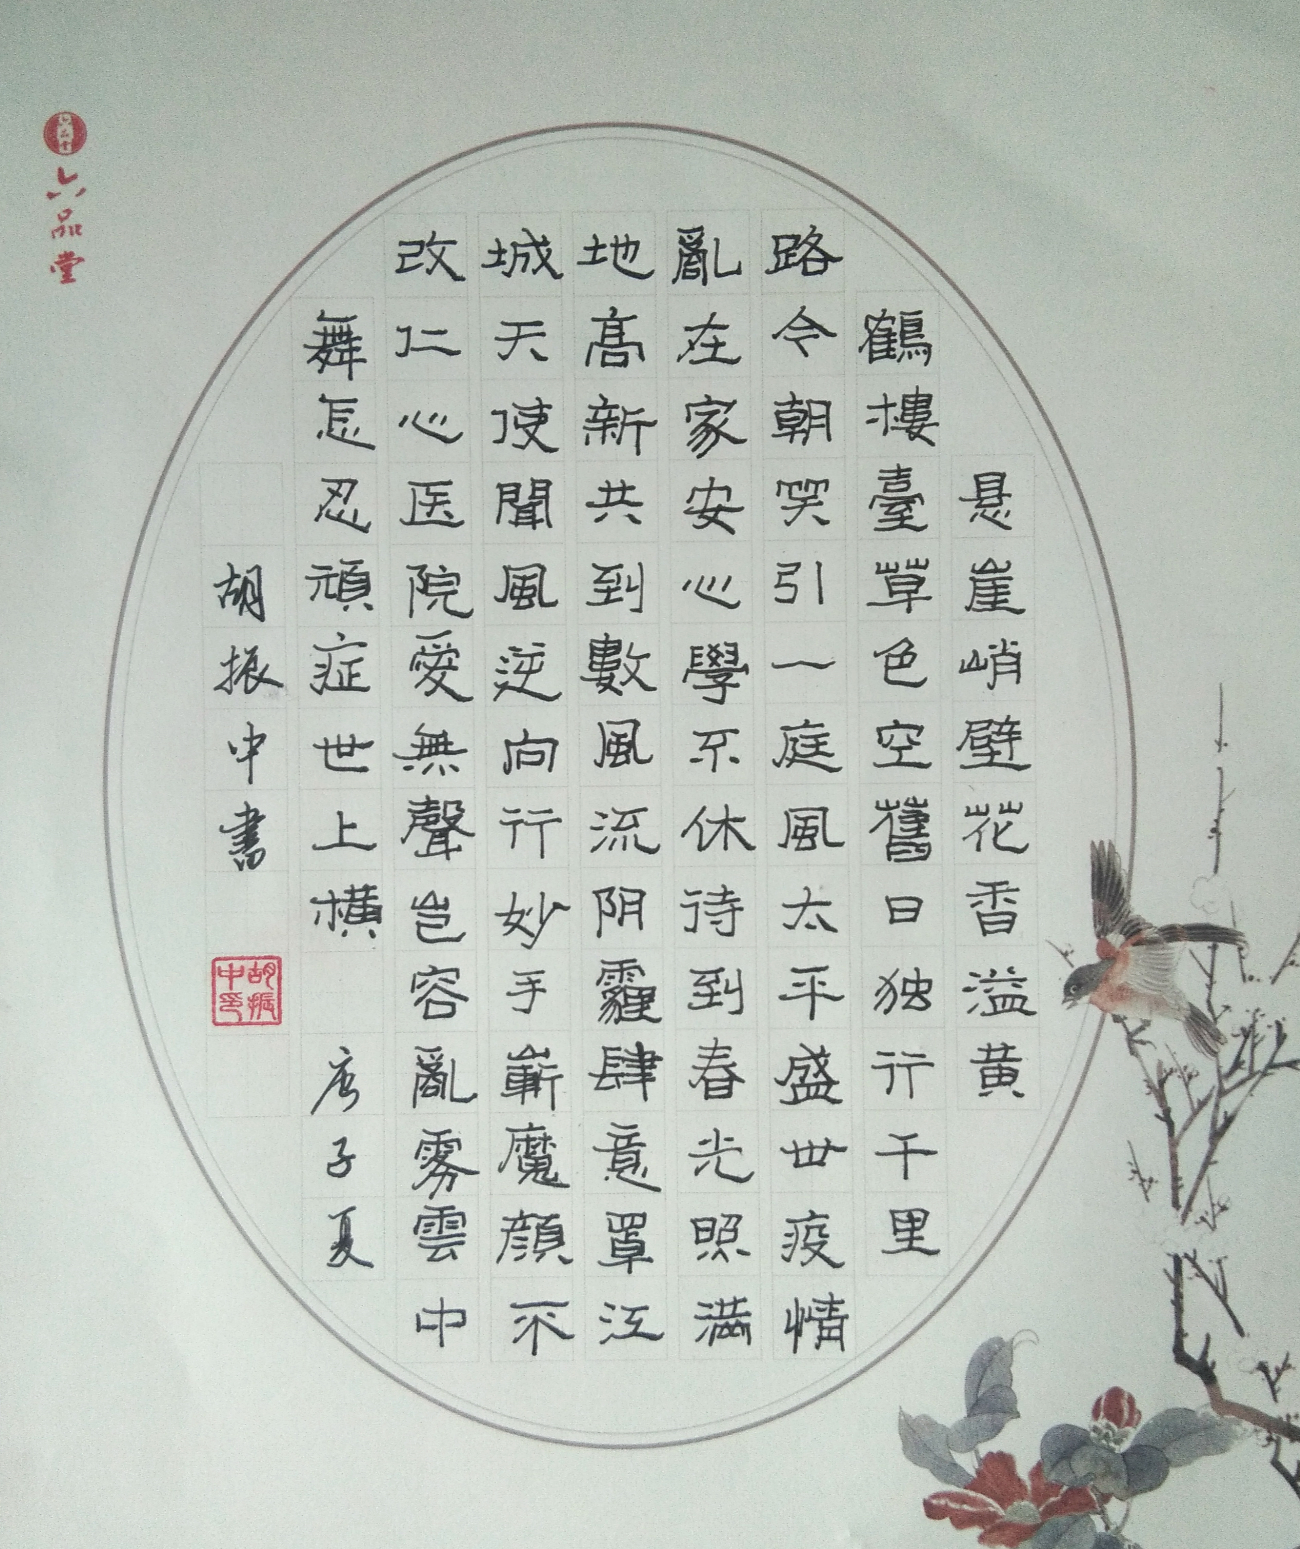 悬崖峭壁花香溢黄
鶴樓臺草色空舊日独行千里
路令朝笑引一庭風太平盛世疫情
亂在家安心學不休待到春光照满
地高新共到數風流阴霾肆意罩江
城天使聞風逆向行妙手嶄魔顔不
改仁心医院愛無聲岂容亂雾雲中
舞怎忍頑症世上横 唐子夏
胡振中書
胡振中印
六品堂